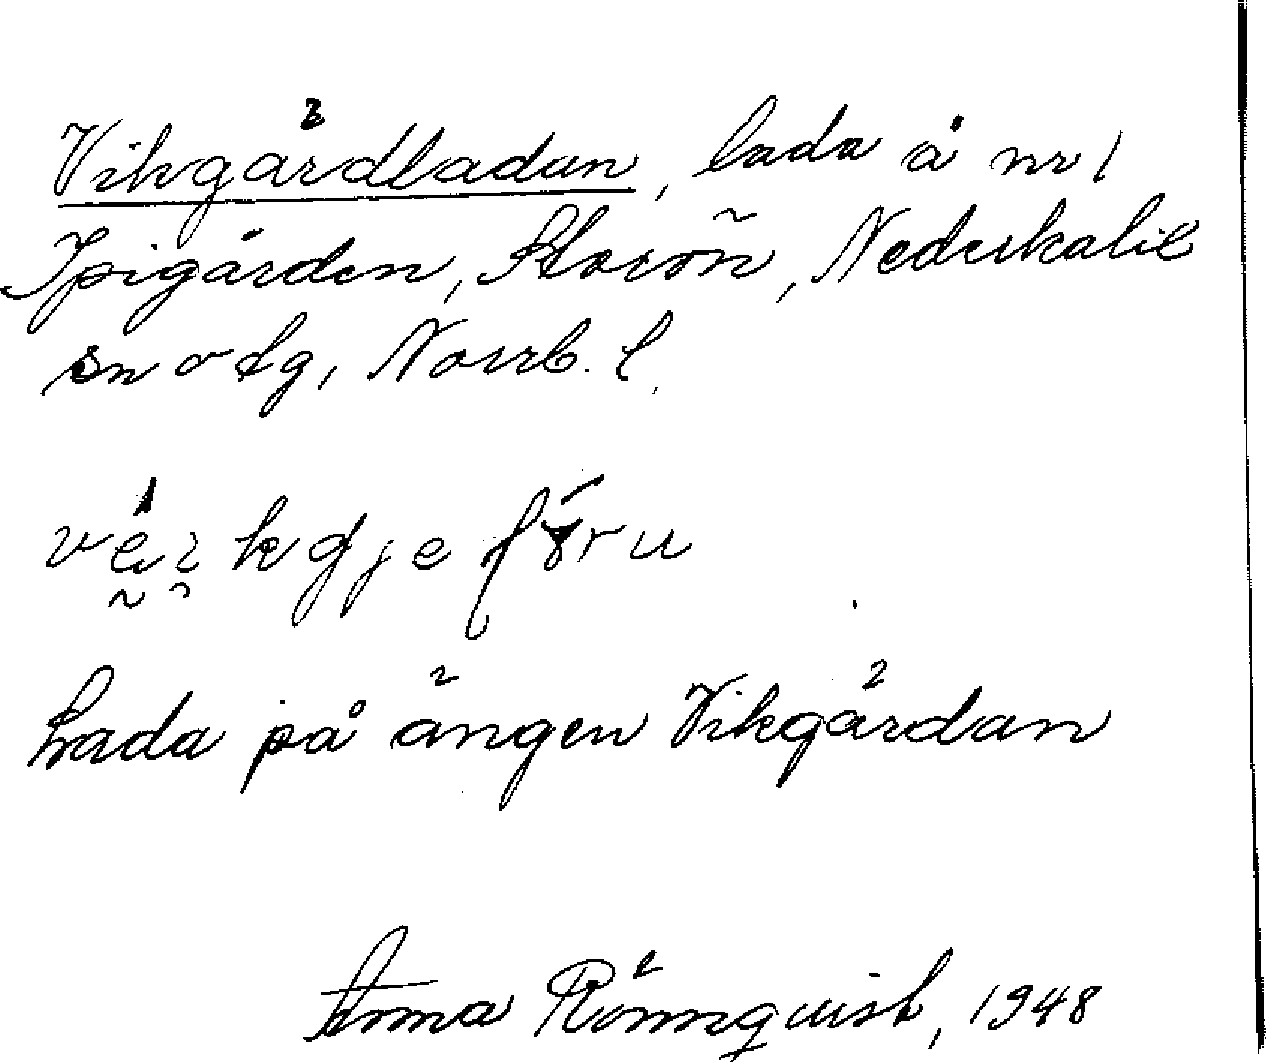 Vikgärdladan, lada å nr 1
Spigården, Storön, Nederkalix
sn o tg, Norrb. l.
Lada på ängen Vikgärdan
Anna Rönnquist, 1948